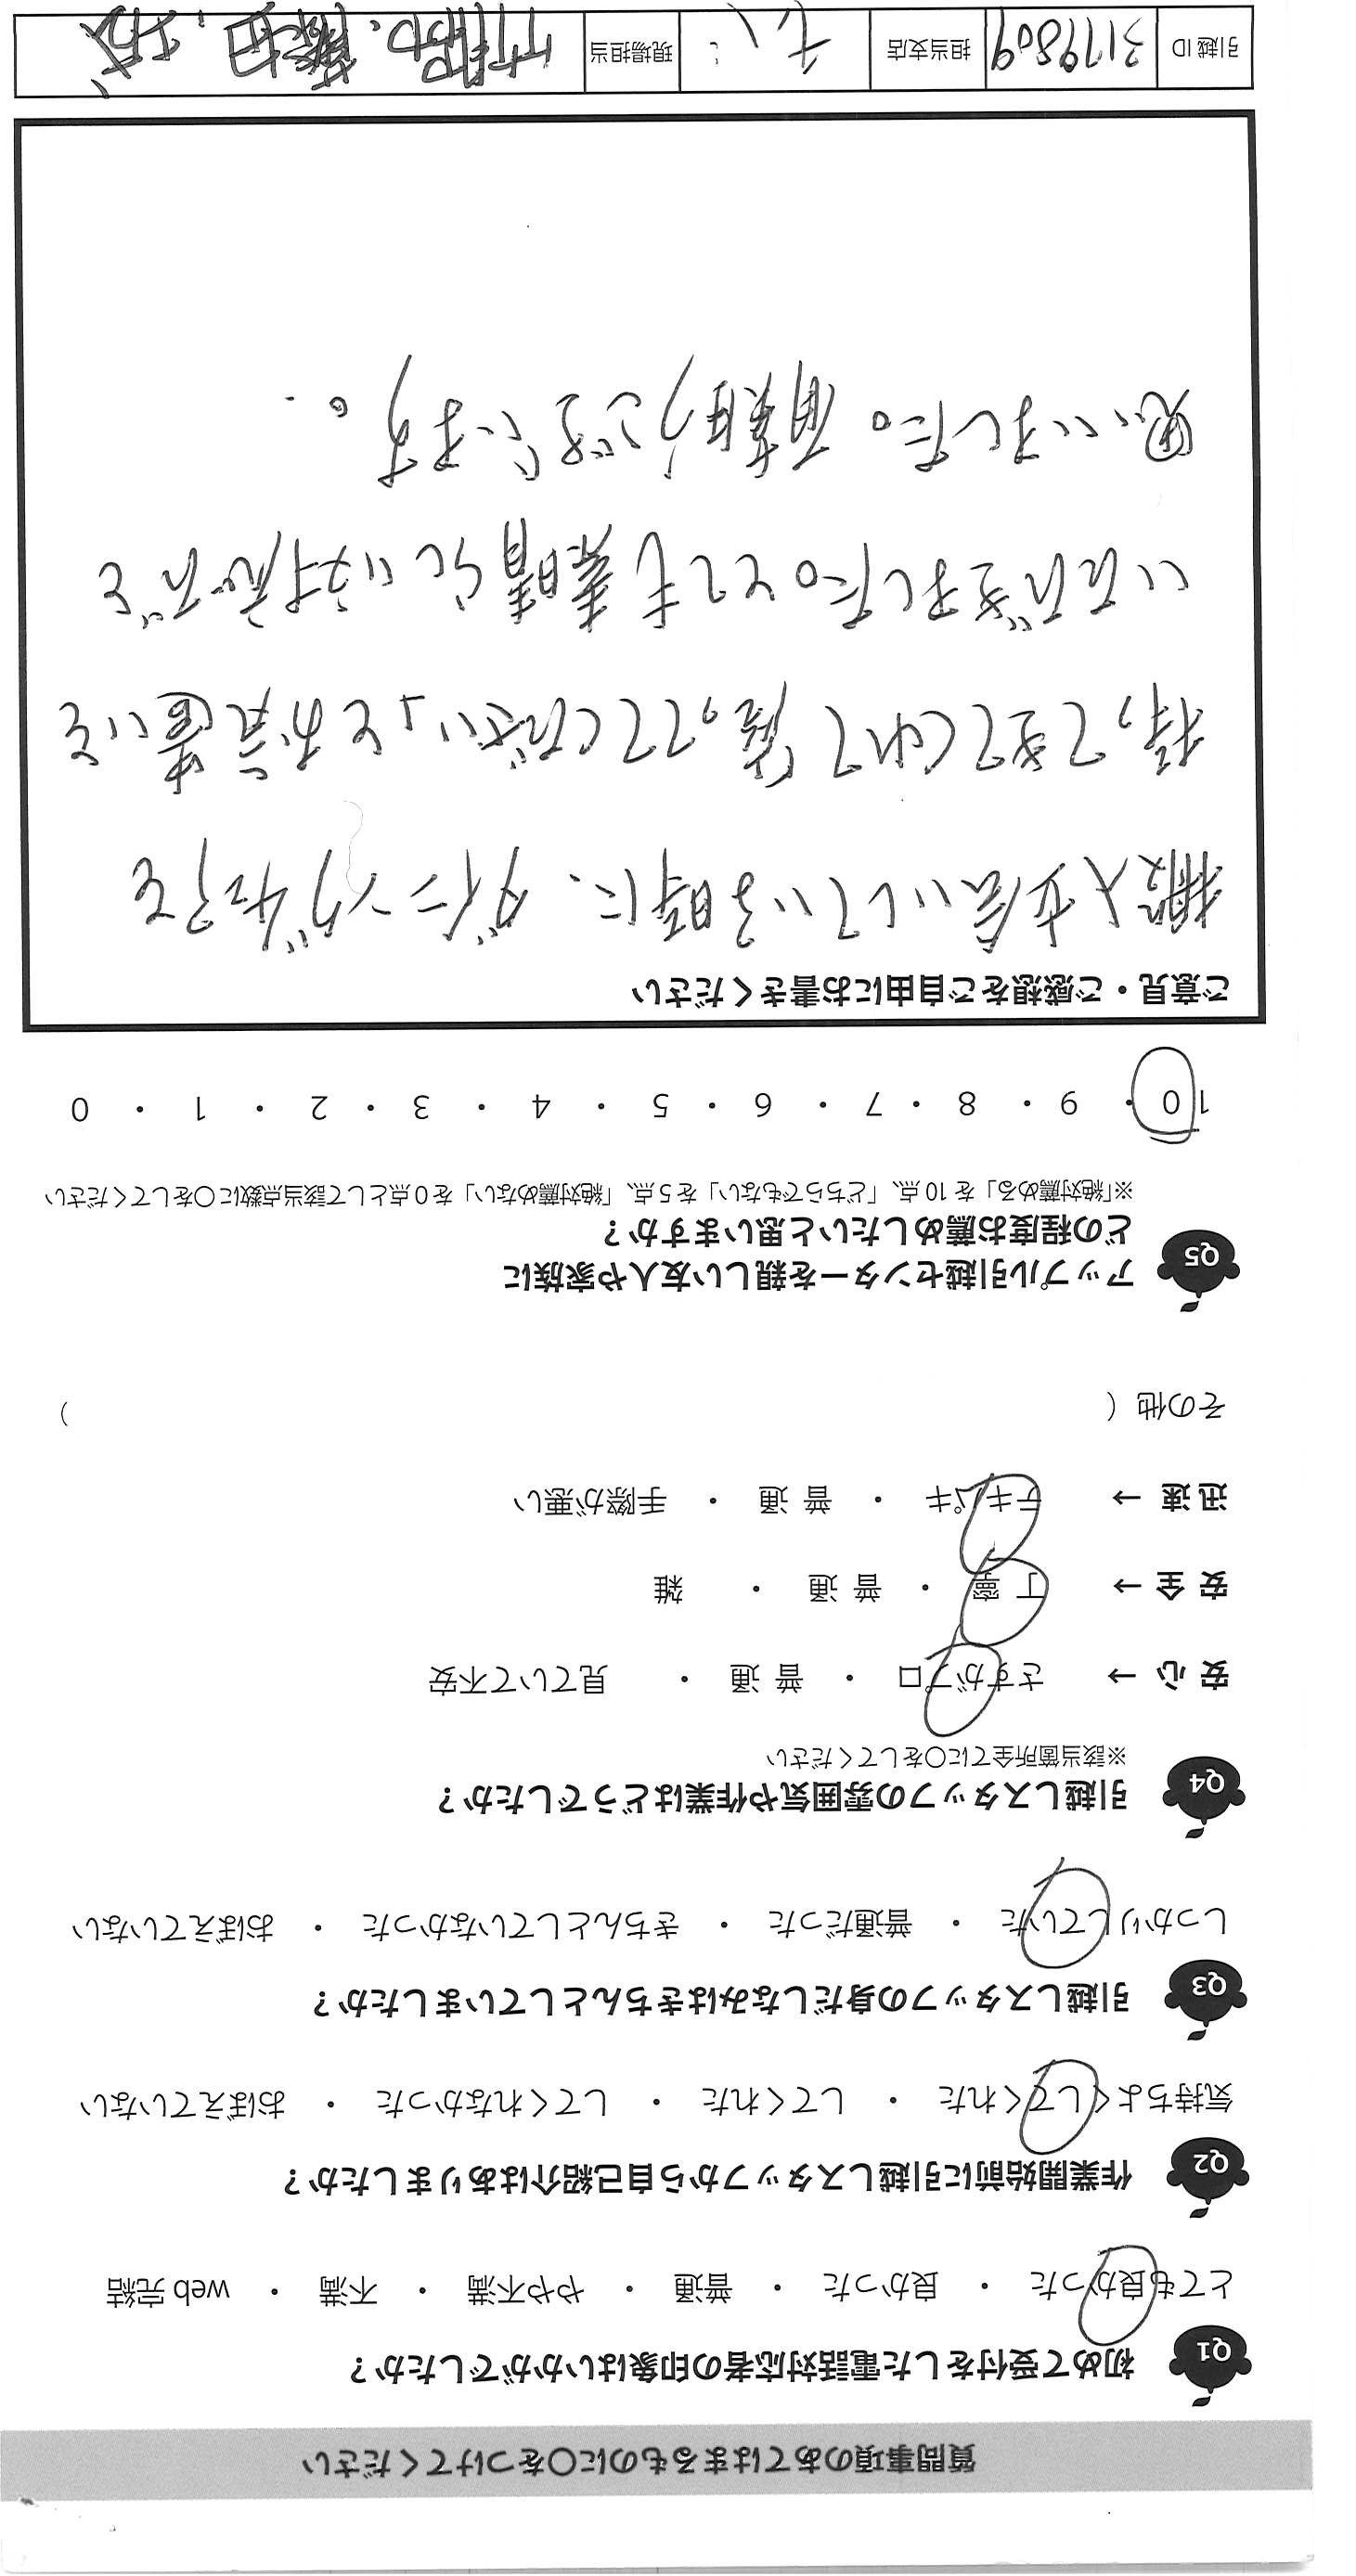 質問事項のあてはまるものに〇をつけてください
Q1 初めて受付をした電話対応者の印象はいかがでしたか？
とても良かった ・ 良かった ・ 普通 ・ やや不満 ・ 不満 ・ web 完結
Q2 作業開始前に引越しスタッフから自己紹介はありましたか？
気持ちよくしてくれた ・ してくれた ・ してくれなかった ・ おぼえていない
Q3 引越しスタッフの身だしなみはきちんとしていましたか？
しっかりしていた ・ 普通だった ・ きちんとしていなかった ・ おぼえていない
Q4 引越しスタッフの雰囲気や作業はどうでしたか？
※該当箇所全てに〇をしてください
安 心 → さすがプロ ・ 普 通 ・ 見ていて不安
安 全 → 丁 寧 ・ 普 通 ・ 雑
迅 速 → テキパキ ・ 普 通 ・ 手際が悪い
その他（ ）
Q5 アップル引越センターを親しい友人や家族に
どの程度お薦めしたいと思いますか？
※「絶対薦める」を 10 点、「どちらでもない」を 5 点、「絶対薦めない」を 0 点として該当点数に〇をしてください
10 ・ 9 ・ 8 ・ 7 ・ 6 ・ 5 ・ 4 ・ 3 ・ 2 ・ 1 ・ 0
ご意見・ご感想をご自由にお書きください
搬入お願いしている時に、ダイニングチェアを
持ってきてくれて「座っててください」と
いただきました。とても素晴らしい対応だと
思いました。有難うございます。
引越 ID 3179809 担当支店 現場担当 服部、藤田、